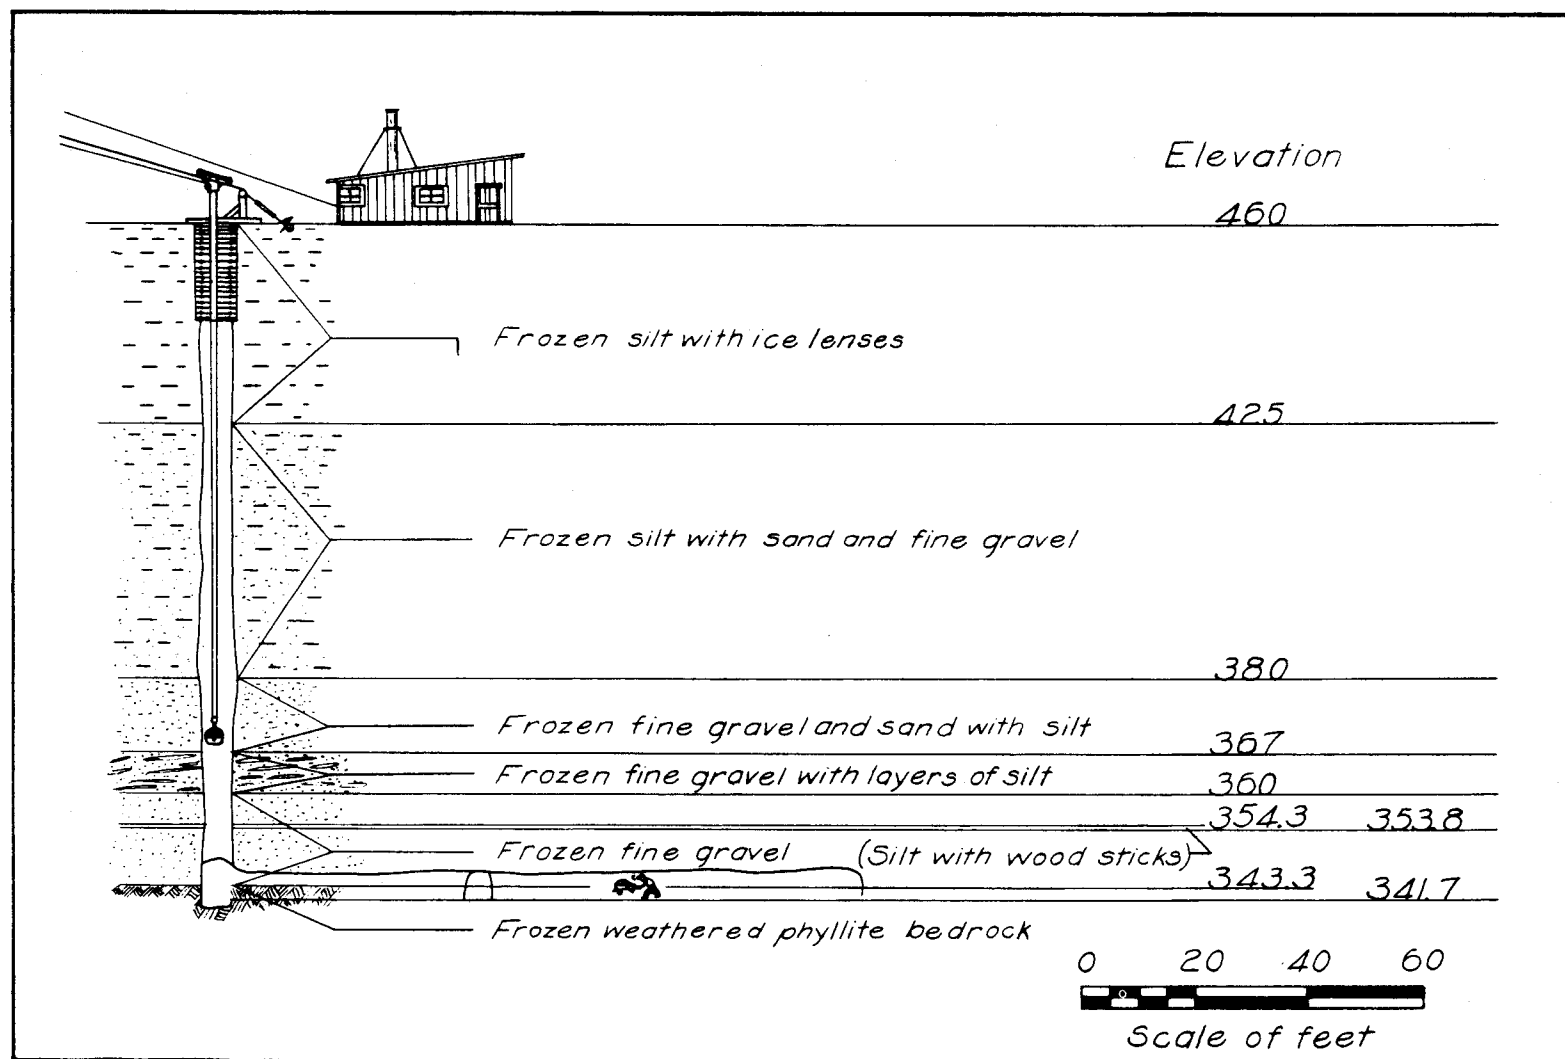 Elevation
460
Frozen silt with ice lenses
425
Frozen silt with sand and fine gravel
380
Frozen fine gravel and sand with silt
367
Frozen fine gravel with layers of silt
360
354.3 353.8
Frozen fine gravel (Silt with wood sticks)
343.3 341.7
Frozen weathered phyllite bedrock
0 20 40 60
Scale of feet